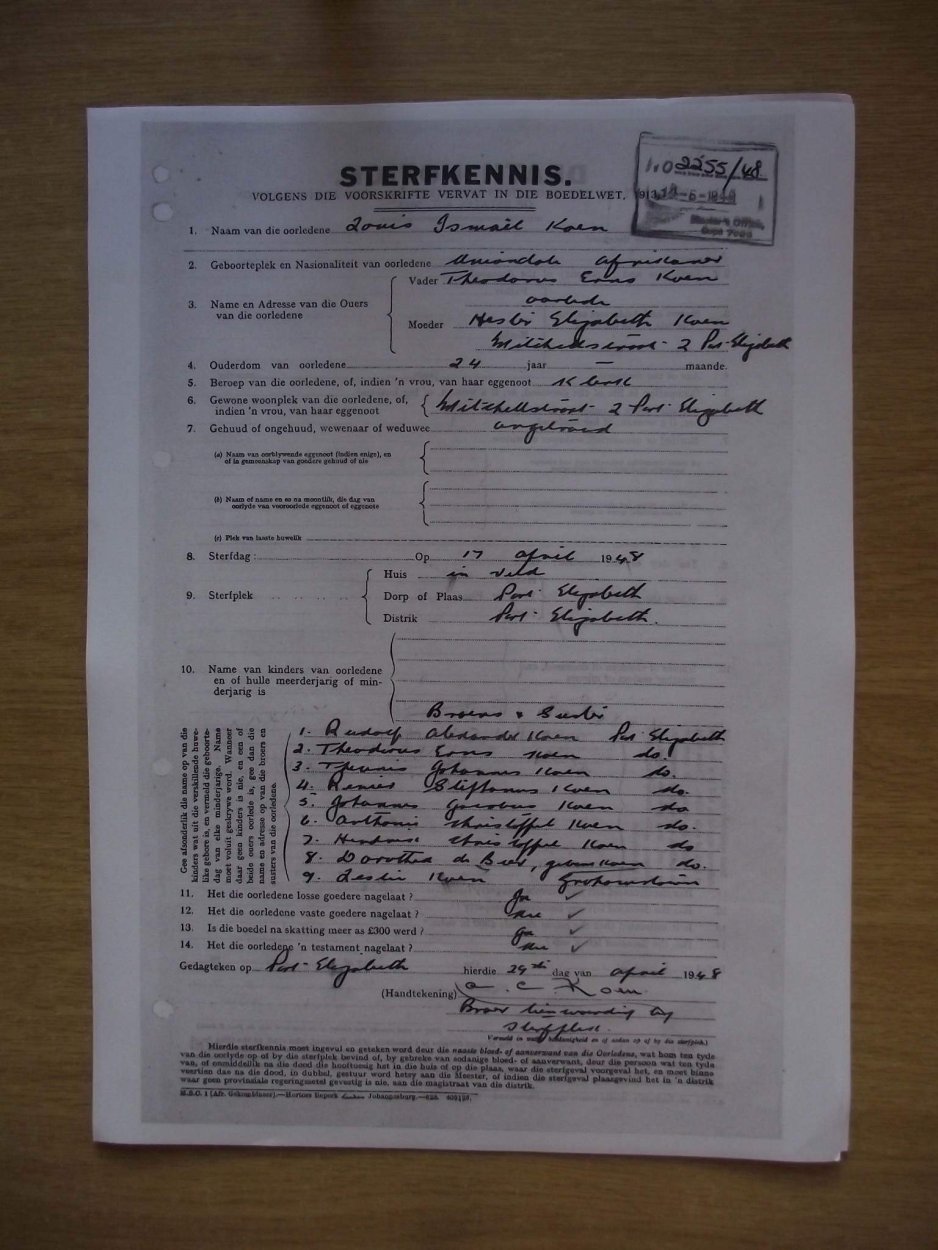 STERFKENNIS.
VOLGENS DIE VOORSKRIFTE VERVAT IN DIE BOEDELWET, 1913.
No 2255/48
-6-1948
Master's Office,
1. Naam van die oorledene Louis Ismaël Koen
2. Geboorteplek en Nasionaliteit van oorledene Uniondale Afrikaner
3. Name en Adresse van die Ouers van die oorledene
Vader Theodorus Erns Koen
oorlede
Moeder Hester Elizabeth Koen
Mitchellstraat 2 Port Elizabeth
4. Ouderdom van oorledene 24 jaar — maande.
5. Beroep van die oorledene, of, indien 'n vrou, van haar eggenoot Klerk
6. Gewone woonplek van die oorledene, of, indien 'n vrou, van haar eggenoot
Mitchellstraat 2 Port Elizabeth
7. Gehuud of ongehuud, wewenaar of weduwee ongetroud
(a) Naam van oorblywende eggenoot (indien enige), en
of in gemeenskap van goedere gehuud of nie
(b) Naam of name en so na moontlik, die dag van
oorlyde van vooroorlede eggenoot of eggenote
(c) Plek van laaste huwelik
8. Sterfdag: Op 17 April 1948
9. Sterfplek
Huis in veld
Dorp of Plaas Port Elizabeth
Distrik Port Elizabeth.
10. Name van kinders van oorledene
en of hulle meerderjarig of min-
derjarig is
Broers & Suster
Gee afsonderlik die name op van die
kinders wat uit die verskillende huwe-
like gebore is, en vermeld die geboorte-
dag van elke minderjarige. Name
moet voluit geskrywe word. Wanneer
daar geen kinders is nie, en een of
beide ouers oorlede is, gee dan die
name en adresse op van die broers en
susters van die oorledene.
1. Rudolf Alexander Koen Port Elizabeth
2. Theodorus Erns Koen do.
3. Theunis Johannes Koen do.
4. Stefanus Koen do.
5. Johannes Jacobus Koen do
6. Anthonie Christoffel Koen do.
7. Christoffel Koen do
8. Dorothea de Beer, gebore Koen do.
9. Leslie Koen Grahamstown
11. Het die oorledene losse goedere nagelaat? Ja ✓
12. Het die oorledene vaste goedere nagelaat? Nee ✓
13. Is die boedel na skatting meer as £300 werd? Ja ✓
14. Het die oorledene 'n testament nagelaat? Nee ✓
Gedagteken op Port Elizabeth hierdie 29ste dag van April 1948
(Handtekening) A. C. Koen
Broer teenwoordig by
sterfplek.
Hierdie sterfkennis moet ingevul en geteken word deur die naaste bloed- of aanverwant van die Oorledene, wat hom ten tyde
van die oorlyde op of by die sterfplek bevind of, by gebreke van sodanige bloed- of aanverwant, deur die persoon wat ten tyde
van, of onmiddellik na die dood die hooftoesig het in die huis of op die plaas, waar die sterfgeval voorgeval het, en moet binne
veertien dae na die dood, in dubbel, gestuur word hetsy aan die Meester, of indien die sterfgeval plaasgevind het in 'n distrik
waar geen provinsiale regeringsetel gevestig is nie, aan die magistraat van die distrik.
Hortors Beperk Johannesburg.